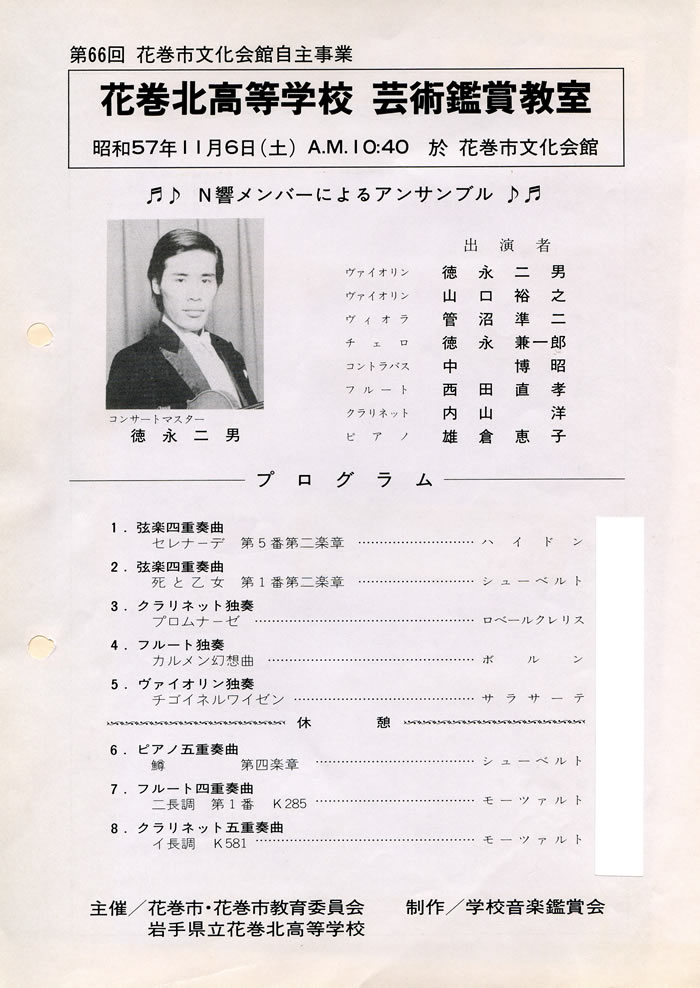 第66回 花巻市文化会館自主事業
花巻北高等学校 芸術鑑賞教室
昭和57年11月6日(土) A.M.10:40 於 花巻市文化会館
♬♪ N響メンバーによるアンサンブル ♪♬
出演者
ヴァイオリン 徳永二男
ヴァイオリン 山口裕之
ヴィオラ 管沼準二
チェロ 徳永兼一郎
コントラバス 中博昭
フルート 西田直孝
クラリネット 内山洋
ピアノ 雄倉恵子
コンサートマスター
徳永二男
プログラム
1. 弦楽四重奏曲
セレナーデ 第5番第二楽章 ……………………… ハイドン
2. 弦楽四重奏曲
死と乙女 第1番第二楽章 ……………………… シューベルト
3. クラリネット独奏
プロムナーゼ ……………………… ロベールクレリス
4. フルート独奏
カルメン幻想曲 ……………………… ボルン
5. ヴァイオリン独奏
チゴイネルワイゼン ……………………… サラサーテ
休憩
6. ピアノ五重奏曲
鱒 第四楽章 ……………………… シューベルト
7. フルート四重奏曲
二長調 第1番 K285 ……………………… モーツァルト
8. クラリネット五重奏曲
イ長調 K581 ……………………… モーツァルト
主催/花巻市・花巻市教育委員会 制作/学校音楽鑑賞会
岩手県立花巻北高等学校